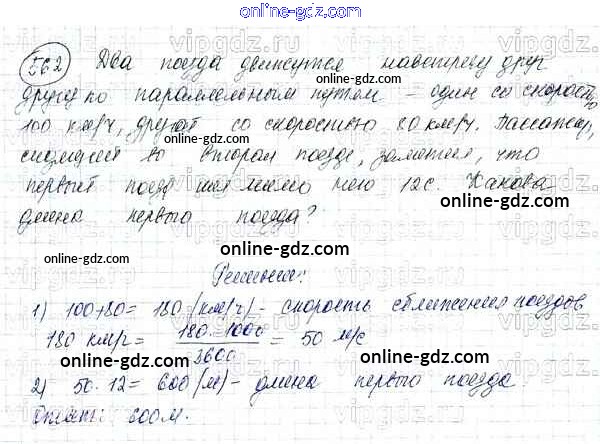 online-gdz.com
562 Два поезда движутся навстречу друг
другу по параллельным путям – один со скорость
100 км/ч, другой со скоростью 80 км/ч. Пассажир,
сидящий во втором поезде, заметил, что
первый поезд шёл мимо него 12с. Какова
длина первого поезда?
online-gdz.com
Решение:
1) 100+80 = 180 (км/ч) – скорость сближения поездов
180 км/ч = 180 · 1000 / 3600 = 50 м/с
online-gdz.com
2) 50 · 12 = 600 (м) – длина первого поезда
Ответ: 600м.
online-gdz.com